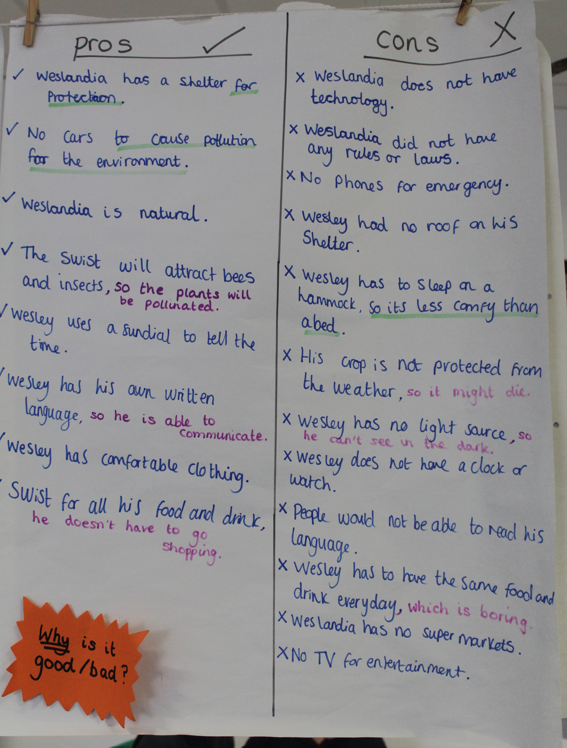 pros ✓
✓ Weslandia has a shelter for
Protection.
✓ No cars to cause pollution
for the environment.
✓ Weslandia is natural.
✓ The Swist will attract bees
and insects, so the plants will
be pollinated.
✓ Wesley uses a sundial to tell the
time.
✓ Wesley has his own written
language, so he is able to
communicate.
✓ Wesley has comfortable clothing.
✓ Swist for all his food and drink,
he doesn't have to go
shopping.
Why is it
good/bad?
cons X
X Weslandia does not have
technology.
X Weslandia did not have
any rules or laws.
X No Phones for emergency.
X Wesley had no roof on his
Shelter.
X Wesley has to Sleep on a
hammock, so its less comfy than
a bed.
X His crop is not protected from
the weather, so it might die.
X Wesley has no light source, so
he can't see in the dark.
X Wesley does not have a clock or
watch.
X People would not be able to read his
language.
X Wesley has to have the same food and
drink everyday, which is boring.
X Weslandia has no super markets.
X No TV for entertainment.